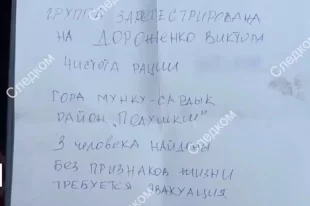 ГРУППА ЗАРЕГЕСТРИРОВАНА
НА ДОРОЖЕНКО ВИКТОРА
ЧИСТОТА РАЦИИ
ГОРА МУНКУ-САРДЫК
РАЙОН "ПОДУШКИ"
3 ЧЕЛОВЕКА НАЙДЕНЫ
БЕЗ ПРИЗНАКОВ ЖИЗНИ
ТРЕБУЕТСЯ ЭВАКУАЦИЯ
Следком
Следком
Следком
Следком
Следком